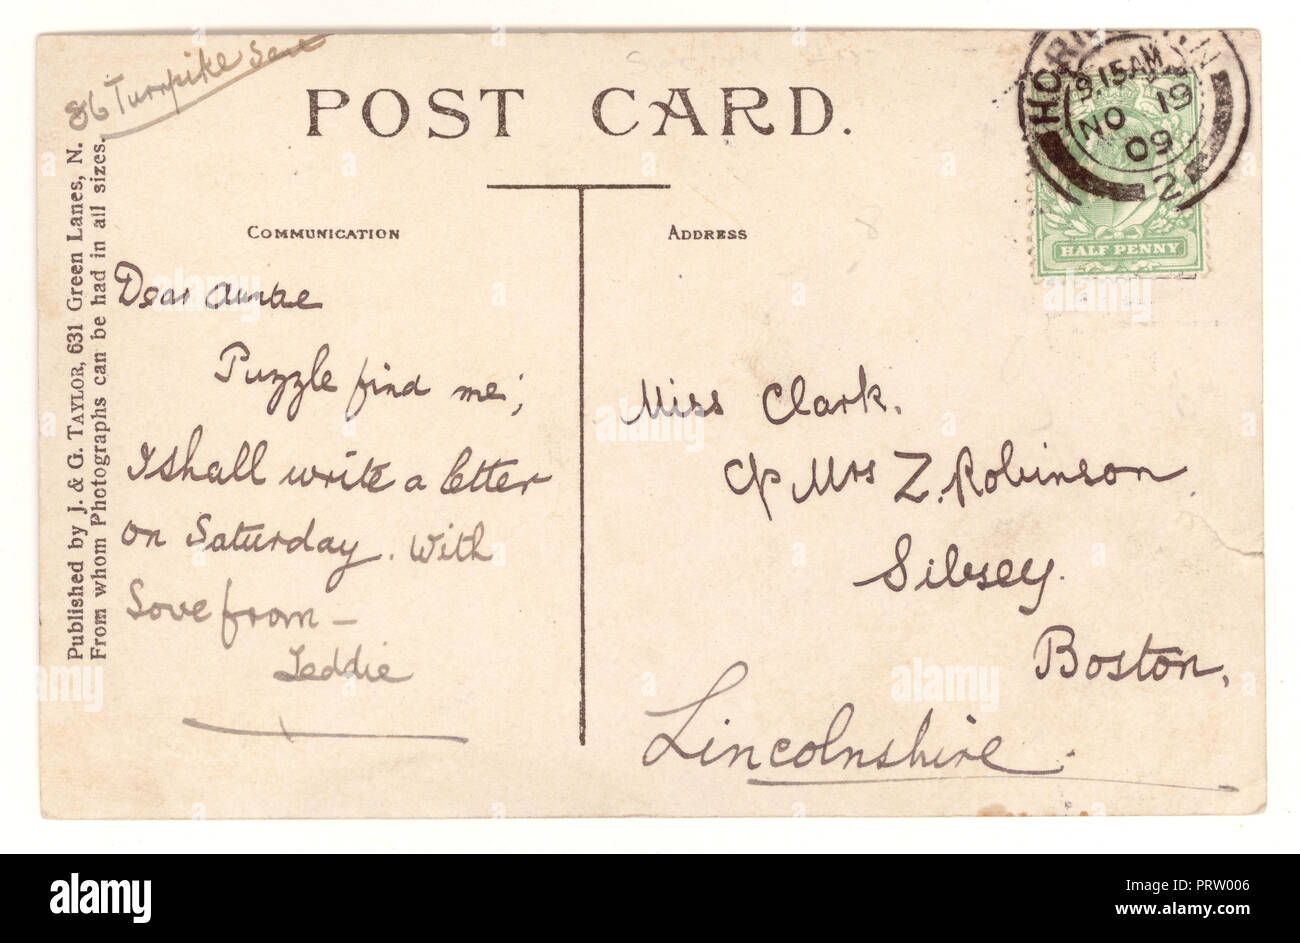 86 Turnpike Lane
POST CARD.
COMMUNICATION
ADDRESS
HORNSEY. N
9.15AM
NO 19
09
2
HALF PENNY
Published by J. & G. TAYLOR, 631 Green Lanes, N.
From whom Photographs can be had in all sizes.
Dear Auntie
Puzzle find me;
I shall write a letter
on Saturday. With
Love from –
Teddie
Miss Clark.
c/o Mrs Z. Robinson
Sibsey.
Boston,
Lincolnshire.
alamy
Image ID: PRTW006
www.alamy.com